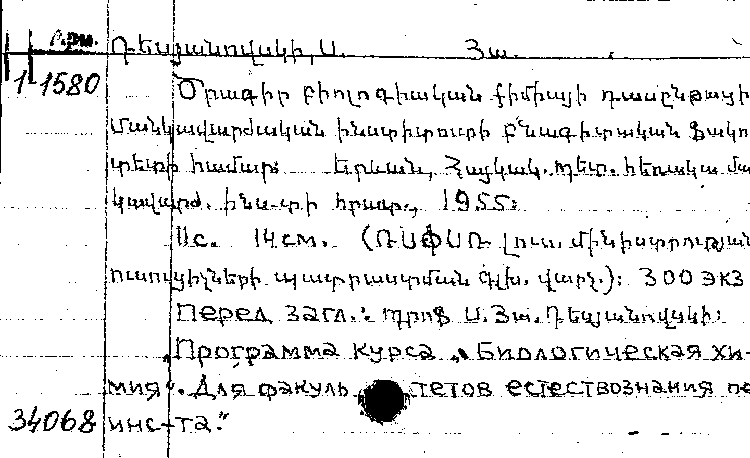 Арм. Դեսյանովսկի, Ս. Յա.
1 1580 Ծրագիր բիոլոգիական քիմիայի դասընթացի
Մանկավարժական ինստիտուտի բնագիտական ֆակո
տետի համար։ Երևան, Հայկակ. պետ. հեռակա մա
կավարժ. ինս-տի հրատ., 1955։
11с. 14см. (ՌՍՓՍՌ լուս. մինիստրության
ուսուցիչների պատրաստման գլխ. վարչ.)։ 300 экз
Перед загл.: պրոֆ Ս. Յա. Դեսյանովսկի։
„Программа курса „Биологическая хи-
мия“. Для факультетов естествознания пе
34068 инс-та.“